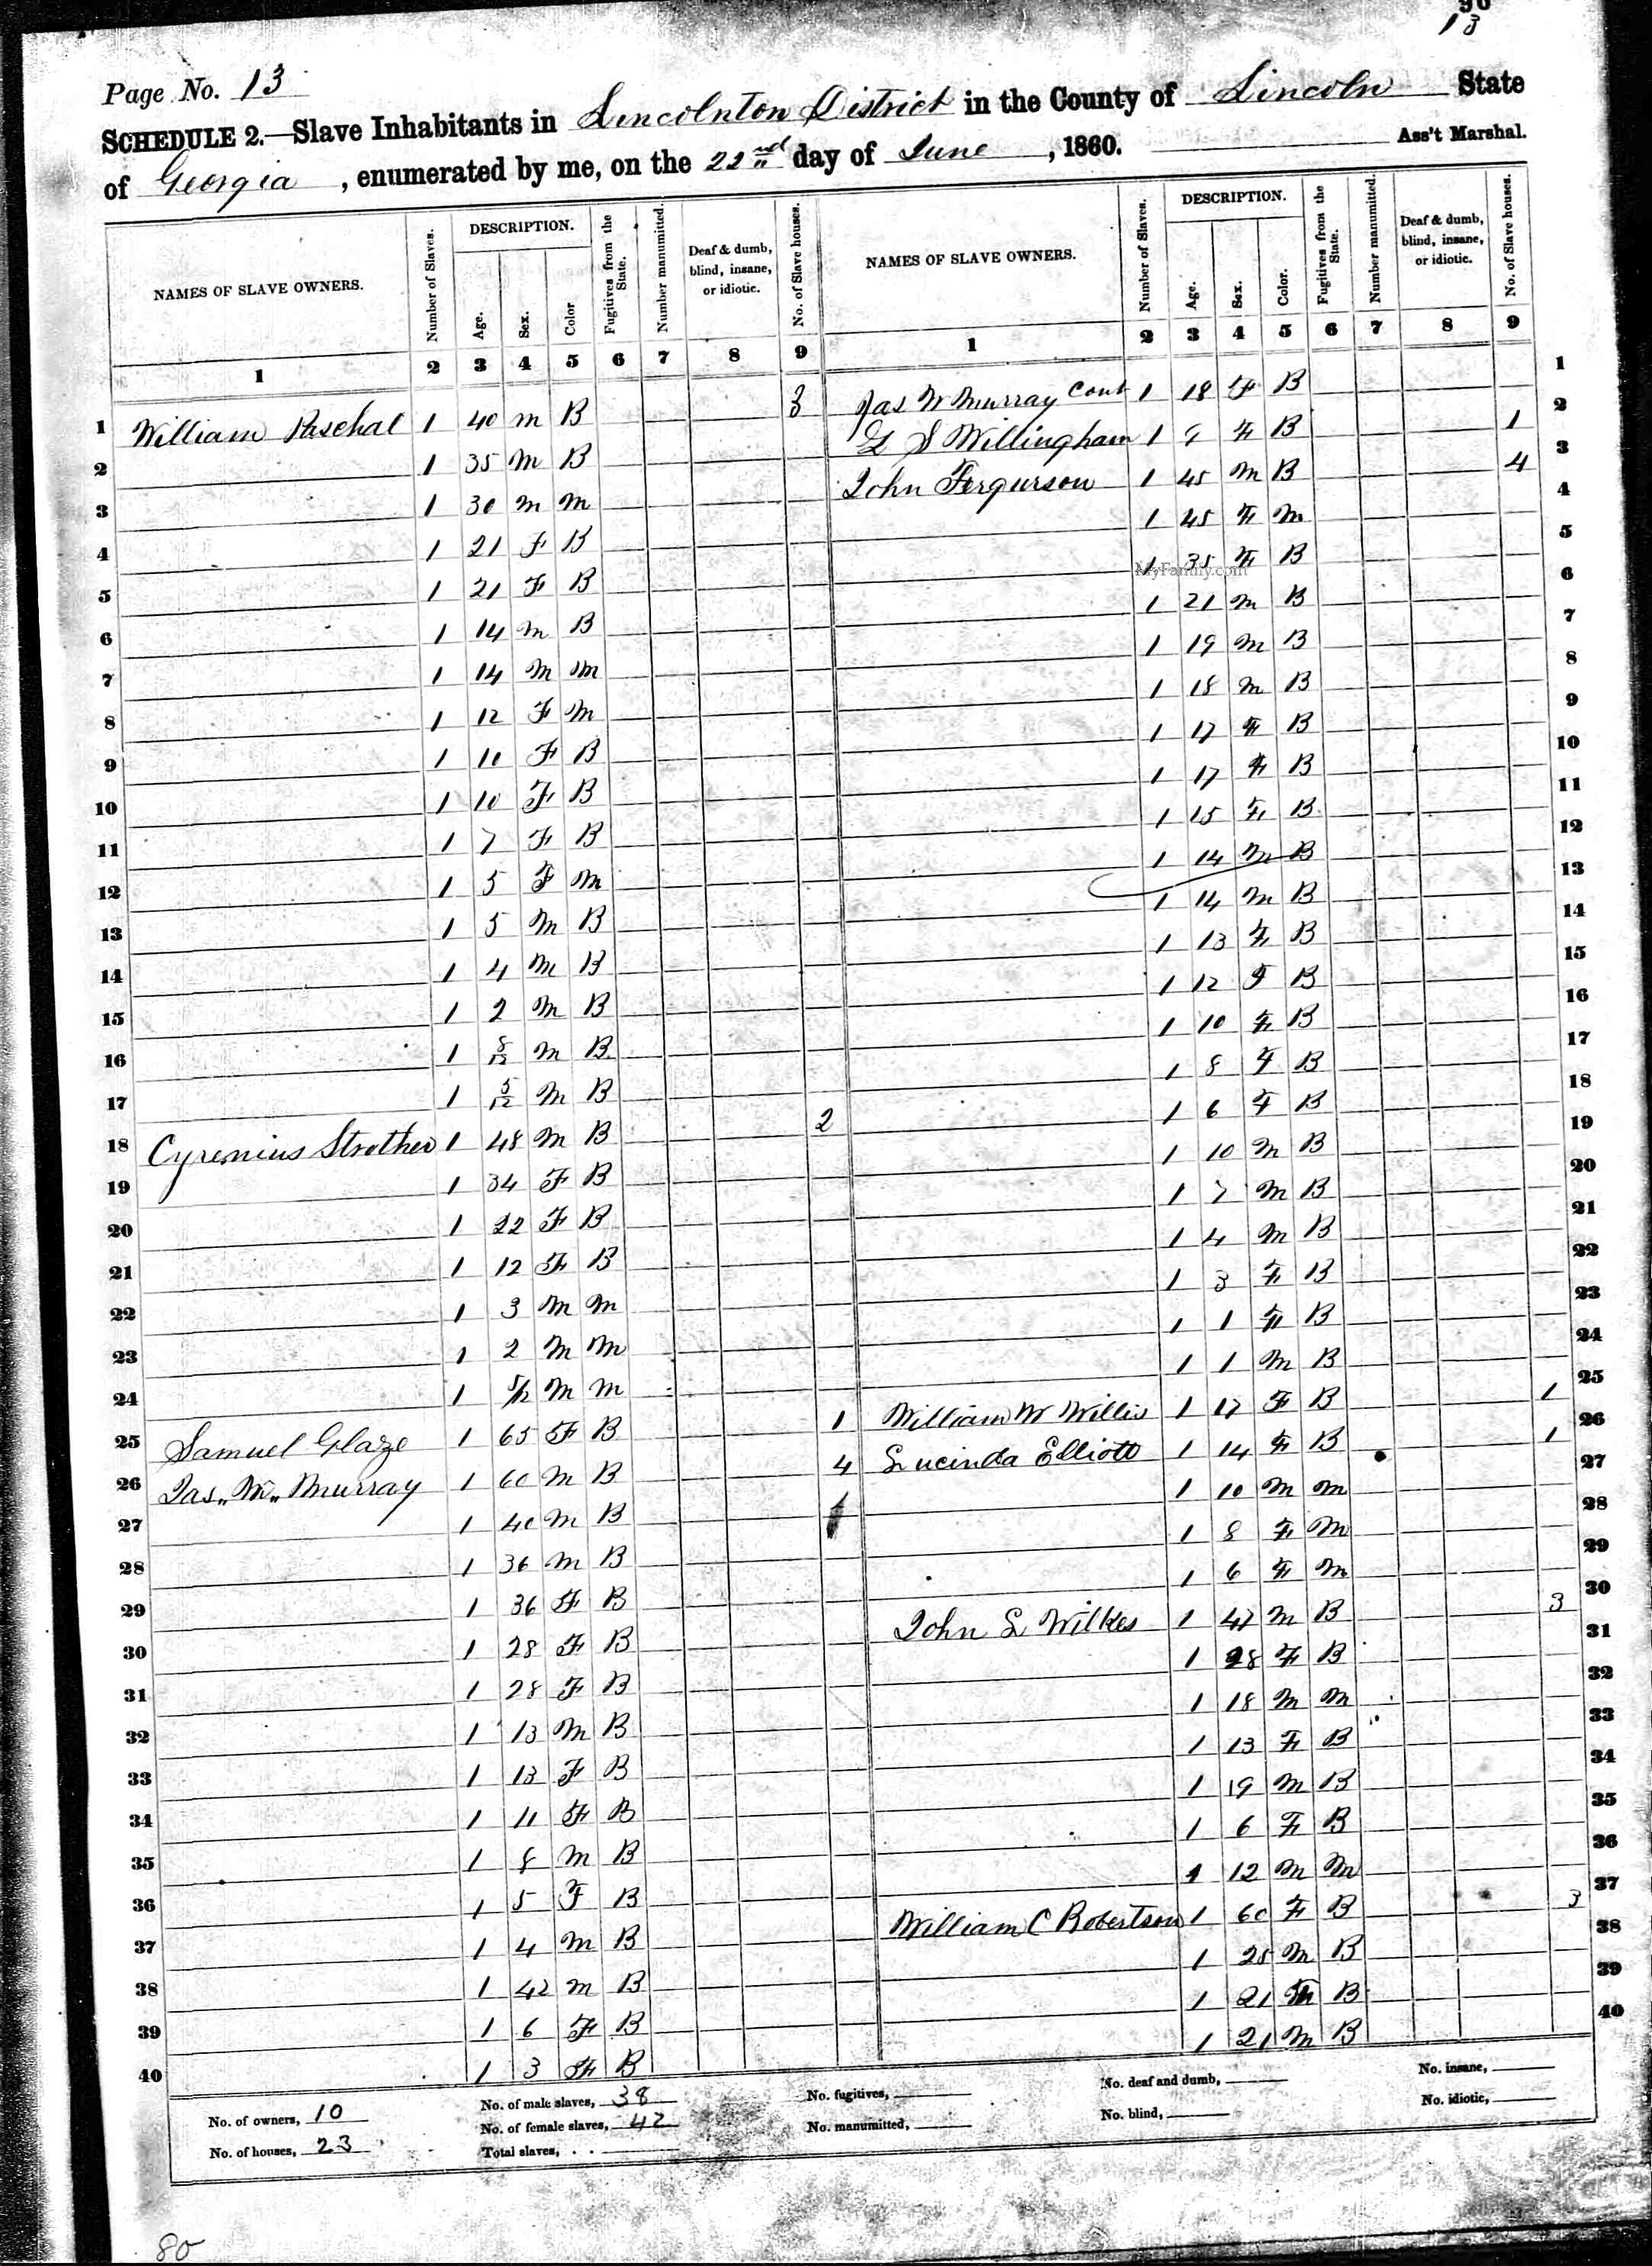 90
13
Page No. 13
SCHEDULE 2.—Slave Inhabitants in Lincolnton District in the County of Lincoln State
of Georgia, enumerated by me, on the 22nd day of June, 1860. Ass't Marshal.
NAMES OF SLAVE OWNERS. Number of Slaves. DESCRIPTION. Age. Sex. Color Fugitives from the State. Number manumitted. Deaf & dumb, blind, insane, or idiotic. No. of Slave houses. NAMES OF SLAVE OWNERS. Number of Slaves. DESCRIPTION. Age. Sex. Color. Fugitives from the State. Number manumitted. Deaf & dumb, blind, insane, or idiotic. No. of Slave houses.
1 2 3 4 5 6 7 8 9 1 2 3 4 5 6 7 8 9
1 William Paschal 1 40 m B 3 Jas W Murray Cont 1 18 F B 1
2 1 35 M B G S Willingham 1 9 F B 1 2
3 1 30 m m John Fergurson 1 45 M B 4 3
4 1 21 F B 1 45 F M 4
5 1 21 F B 1 35 F B 5
MyFamily.com
6 1 14 m B 1 21 m B 6
7 1 14 M M 1 19 m B 7
8 1 12 F M 1 18 m B 8
9 1 10 F B 1 17 F B 9
10 1 10 F B 1 17 F B 10
11 1 7 F B 1 15 F B 11
12 1 5 F M 1 14 m B 12
13 1 5 M B 1 14 m B 13
14 1 4 M B 1 13 F B 14
15 1 2 M B 1 12 F B 15
16 1 8/12 M B 1 10 F B 16
17 1 5/12 M B 1 8 F B 17
18 Cyrenius Strother 1 48 M B 2 1 6 F B 18
19 1 34 F B 1 10 M B 19
20 1 22 F B 1 7 M B 20
21 1 12 F B 1 4 M B 21
22 1 3 M M 1 3 F B 22
23 1 2 M M 1 1 F B 23
24 1 5/12 M M 1 1 M B 24
25 Samuel Glaze 1 65 F B 1 William W Willis 1 17 F B 1 25
26 Jas. W. Murray 1 60 M B 4 Lucinda Elliott 1 14 F B 1 26
27 1 40 M B 1 10 M M 27
28 1 36 M B 1 8 F M 28
29 1 36 F B 1 6 F M 29
30 1 28 F B John L Wilkes 1 47 M B 3 30
31 1 28 F B 1 28 F B 31
32 1 13 M B 1 18 M M 32
33 1 13 F B 1 13 F B 33
34 1 11 F B 1 19 M B 34
35 1 8 M B 1 6 F B 35
36 1 5 F B 1 12 M M 36
37 1 4 M B William C Robertson 1 60 F B 3 37
38 1 42 M B 1 25 M B 38
39 1 6 F B 1 21 B 39
40 1 3 F B 1 21 M B 40
No. of owners, 10 No. of male slaves, 38 No. fugitives, No. deaf and dumb, No. insane,
No. of houses, 23 No. of female slaves, 42 No. manumitted, No. blind, No. idiotic,
Total slaves,
80